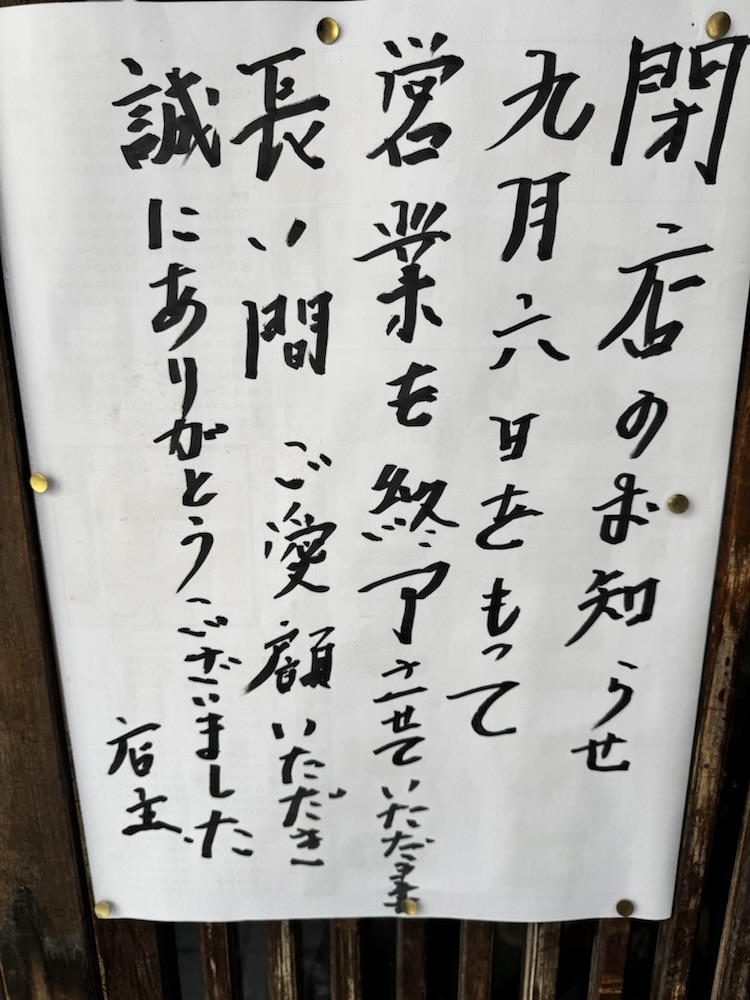 閉店のお知らせ
九月六日をもって
営業を終了させていただき
長い間 ご愛顔いただき
誠にありがとうございました
店主